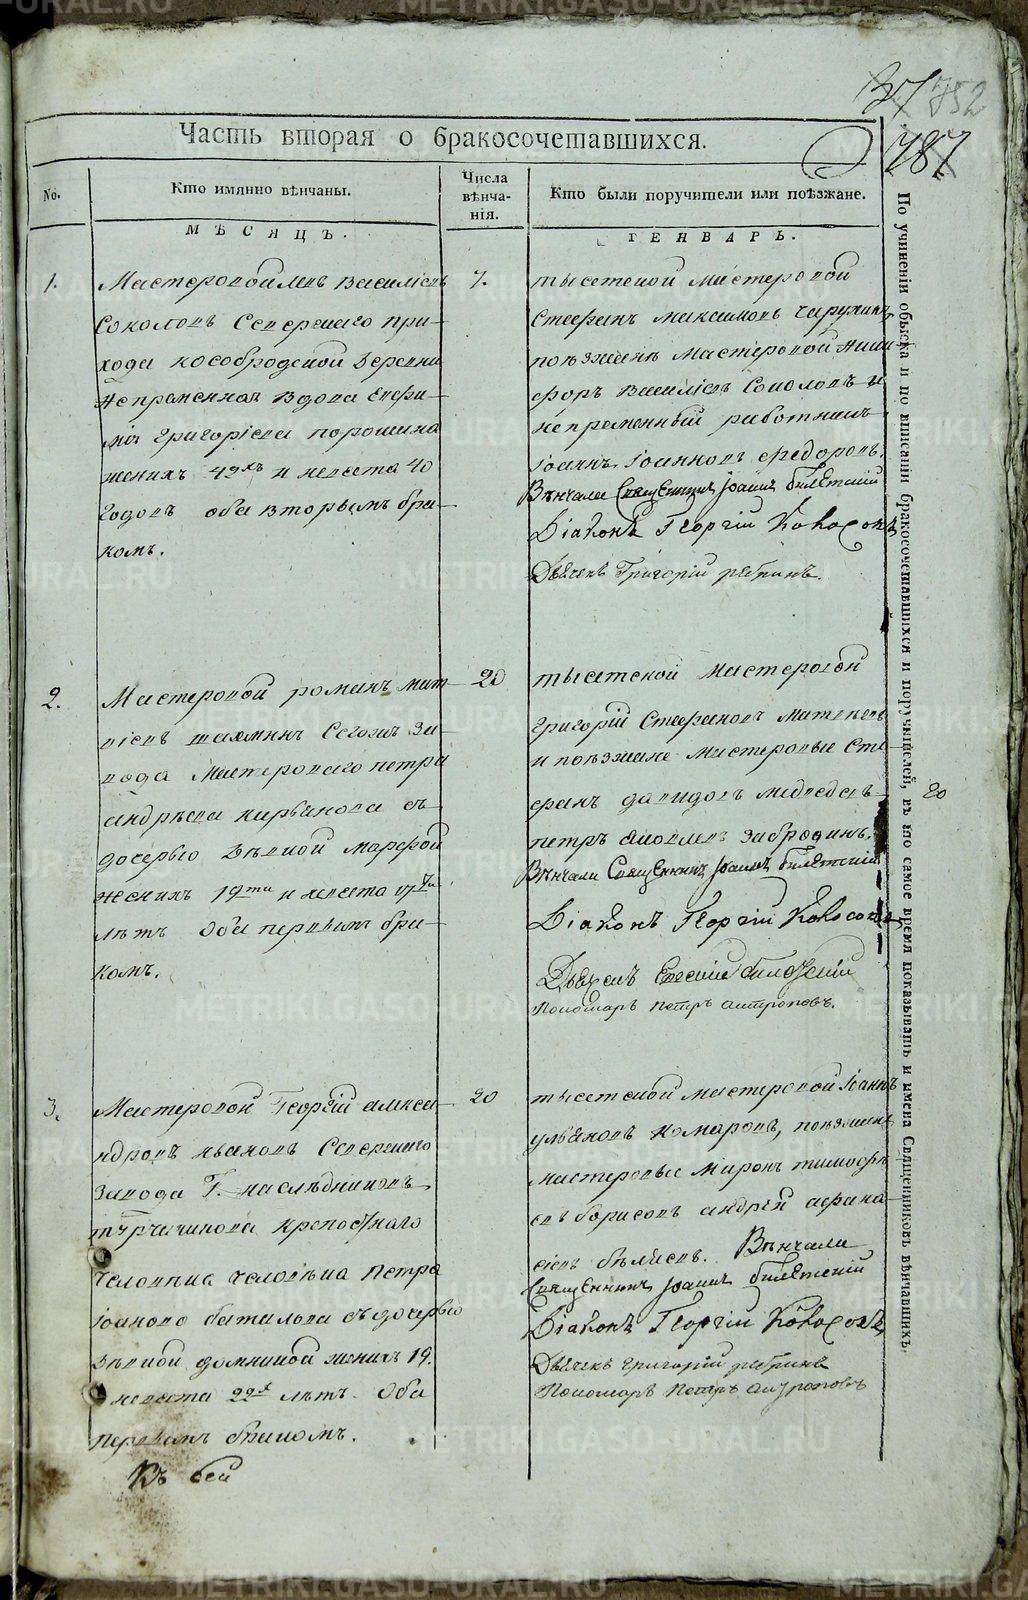 37 752
787
Часть вторая о бракосочетавшихся.
No.
Кто имянно вѣнчаны.
Числа вѣнча-нія.
Кто были поручители или поѣзжане.
МѢСЯЦЪ.
ГЕНВАРЬ.
1.
Мастеровой Василіевъ
Соколовъ Северскаго при-
хода кособродской деревни
вдова Евфи-
мія Григоріева порошина
женихъ 42хъ и невеста 40
годовъ оба вторымъ бра-
комъ.
7.
тысетской мастеровой
Стефанъ максимовъ
поѣзжане мастеровой Ники-
форъ Василіевъ Соколовъ и
непременный работникъ
Іоаннъ Іоанновъ федоровъ.
Вѣнчали Священникъ Іоаннъ
Діаконъ Георгій
Дьячекъ Григорій рябинъ.
2.
Мастеровой романъ мат-
вѣевъ Сегожъ за-
вода Мастероваго петра
андрѣева съ
дочерью дѣвкой марфой
женихъ 19ти и невеста 17ти
лѣтъ Оба первымъ бра-
комъ.
20
тысетской мастеровой
Григорій Стефановъ матвѣевъ
и поѣзжане мастеровые Сте-
фанъ давидовъ медведевъ
петръ яковлевъ забродинъ.
Вѣнчали Священникъ Іоаннъ
Діаконъ Георгій
Дьячекъ
Пономарь Петръ антроповъ.
3.
Мастеровой Георгій алекса-
ндровъ ивановъ Северскаго
завода Г. наследниковъ
турчанинова крепостнаго
человека человѣка Петра
іоанова съ дочерью
дѣвкой домникой женихъ 19.
невеста 22х лѣтъ Оба
первымъ бракомъ.
20
тысетской мастеровой Іоаннъ
ульяновъ комаровъ, поѣзжане
мастеровые Миронъ тимофѣ-
евъ борисовъ андрей афана-
сіевъ бѣляевъ. Вѣнчали
Священникъ Іоаннъ
Діаконъ Георгій
Дьячекъ григорій рябинъ
Пономарь Петръ антроповъ
Къ сей
По учиненіи обыска и по вписаніи бракосочетавшихся и поручителей, въ то самое время показывать и имена Священниковъ вѣнчавшихъ.
20
METRIKI.GASO-URAL.RU